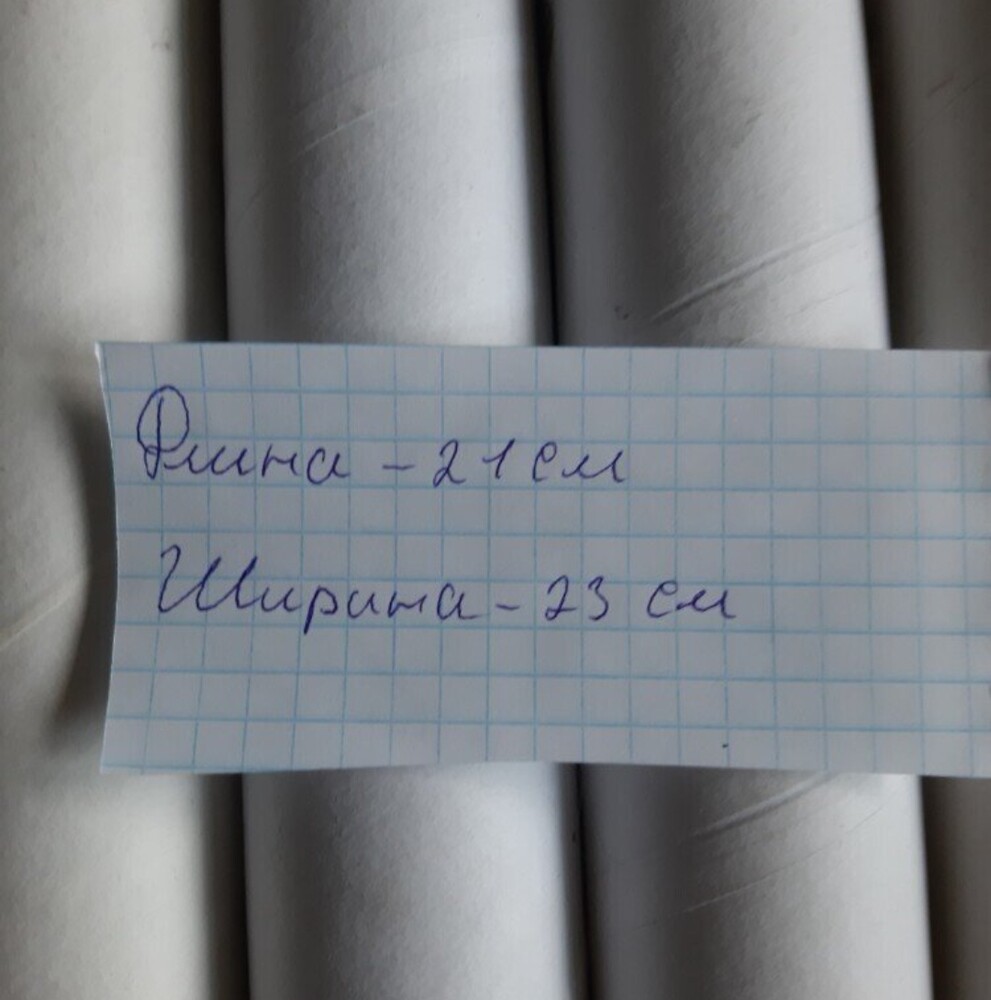 Длина - 21 см
Ширина - 23 см